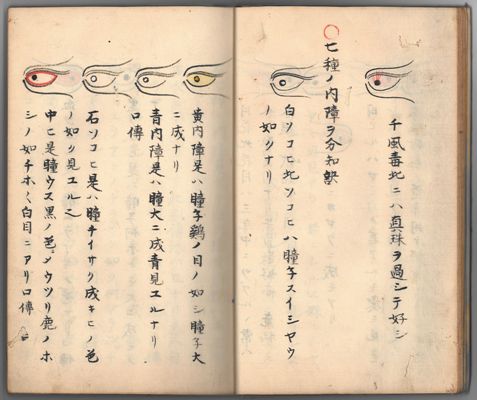 千風毒此ニハ真珠ヲ過シテ好シ
七種ノ内障ヲ分知
白ソコヒ此ソコヒハ瞳子スイシヤウ
ノ如クナリ
黄内障是ハ瞳子鶏ノ目ノ如シ瞳子大
ニ成ナリ
青内障是ハ瞳大ニ成青見エルナリ
口傳
石ソコヒ是ハ瞳チイサク成キヒノ色
ノ如ク見エル
中ヒ是瞳ウス黒ノ色メウツリ鹿ノホ
シノ如チホ〱白目ニアリ口傳